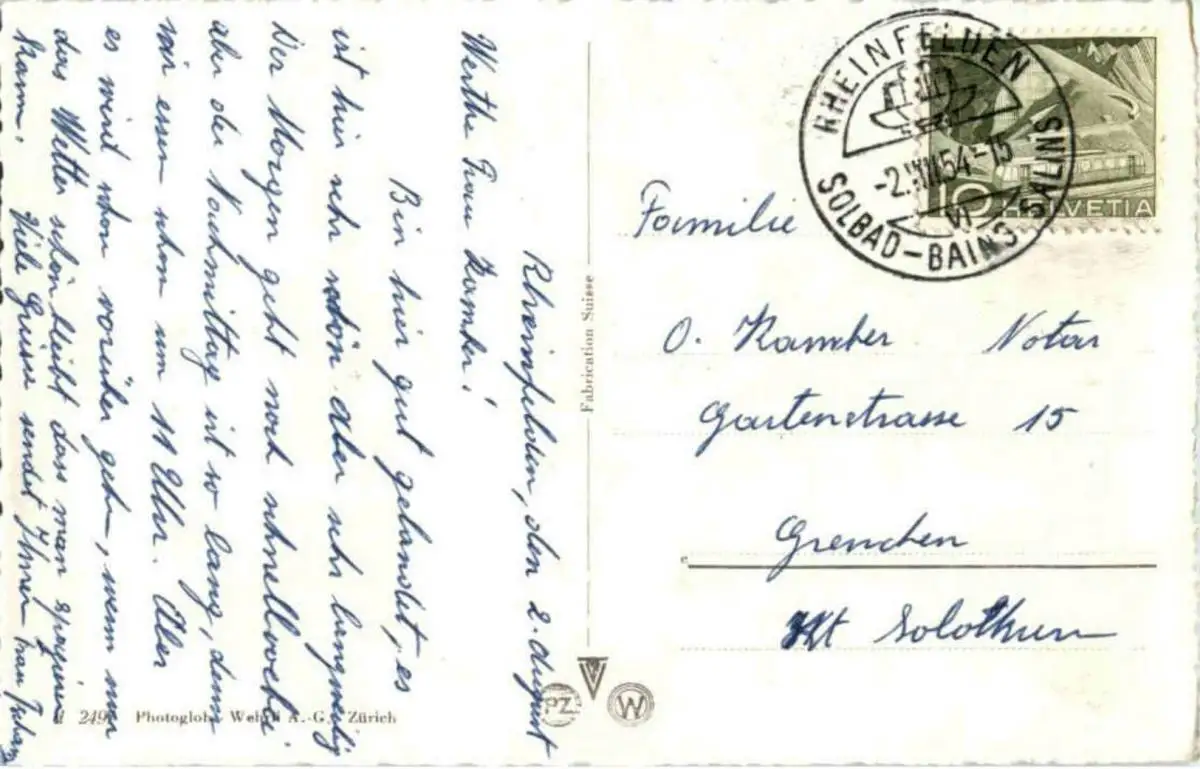 Rheinfelden, den 2. August
Werthe Frau Kamber!
Bin hier gut gelandet, es
ist hier sehr schön aber sehr langweilig
Der Morgen geht noch schnell
aber der Nachmittag ist so lang, denn
wir essen schon um 11 Uhr. Aber
es wird schon vorüber gehn, wenn nur
das Wetter schön bleibt dass man spazieren
kann. Viele Grüsse sendet Ihnen Frau
Fabrication Suisse
249
Photoglob Wehrli A.-G., Zürich
PZ
W
RHEINFELDEN
-2.VIII.54-15
VI
SOLBAD-BAINS SALINS
10 HELVETIA
Familie
O. Kamber Notar
Gartenstrasse 15
Grenchen
Kt Solothurn